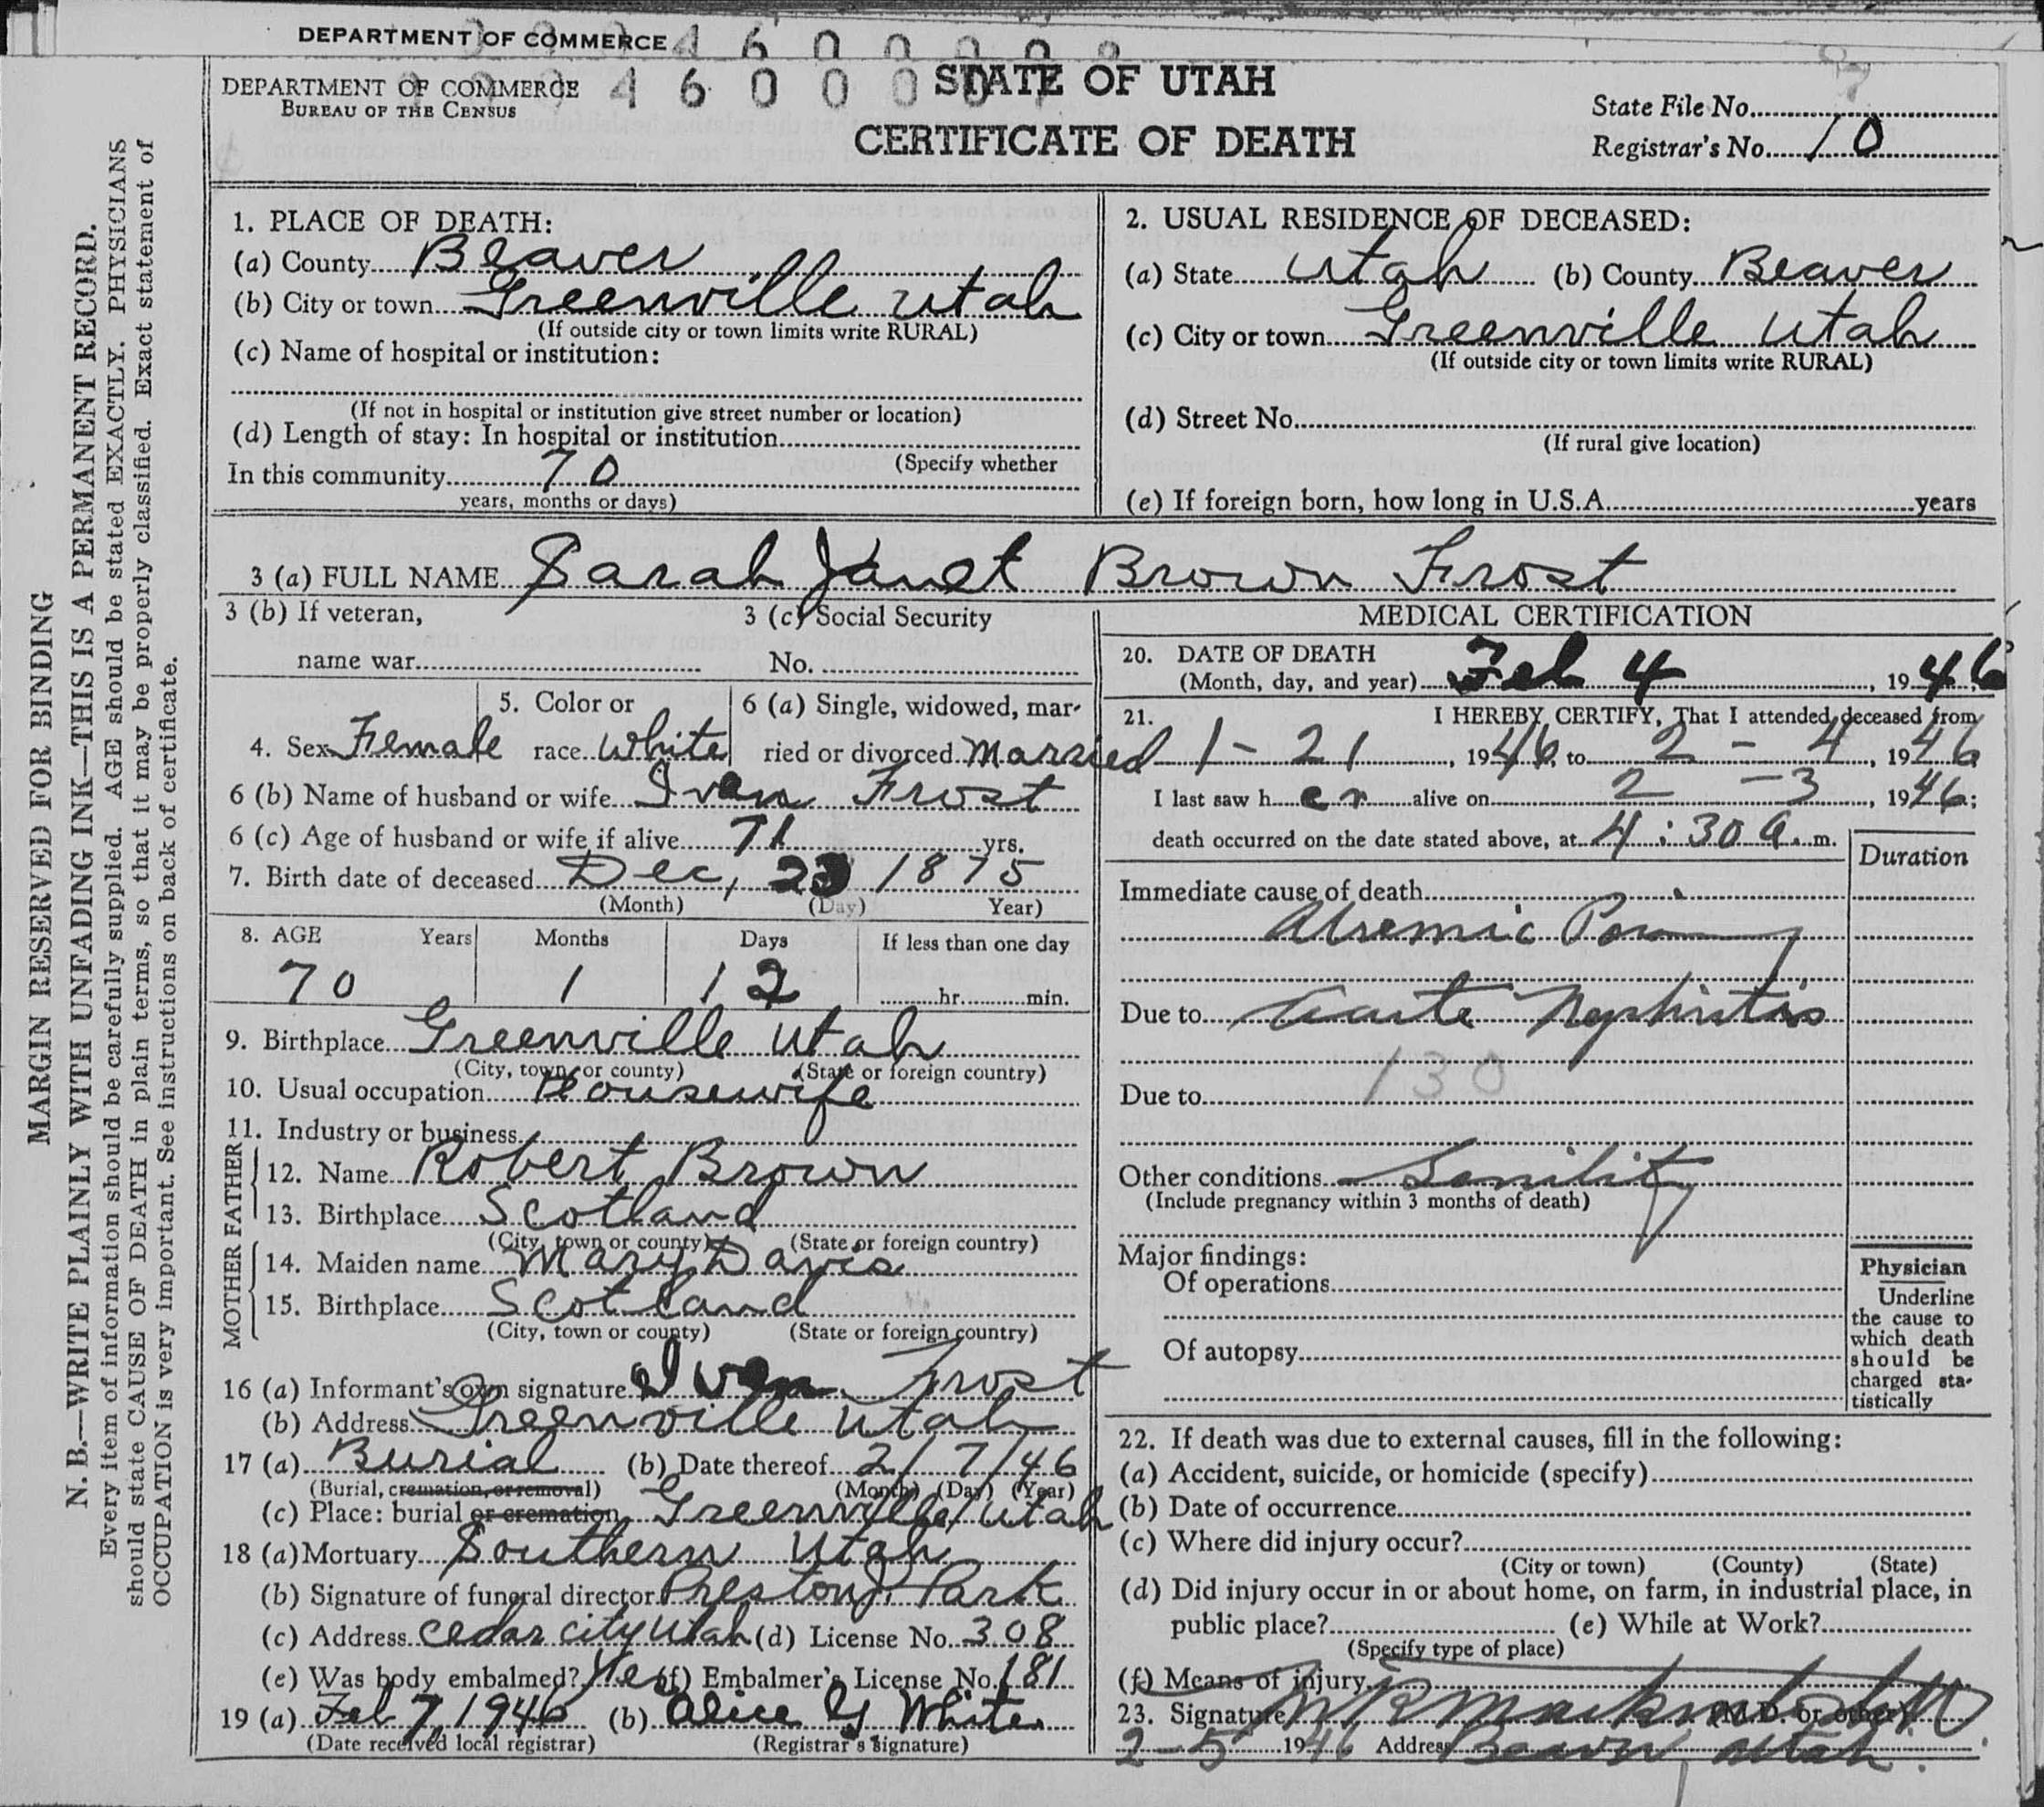 DEPARTMENT OF COMMERCE
DEPARTMENT OF COMMERCE
BUREAU OF THE CENSUS
4 6 0 0 0
STATE OF UTAH
CERTIFICATE OF DEATH
State File No.
Registrar's No. 10
MARGIN RESERVED FOR BINDING
N. B.—WRITE PLAINLY WITH UNFADING INK—THIS IS A PERMANENT RECORD.
Every item of information should be carefully supplied. AGE should be stated EXACTLY. PHYSICIANS
should state CAUSE OF DEATH in plain terms, so that it may be properly classified. Exact statement of
OCCUPATION is very important. See instructions on back of certificate.
1. PLACE OF DEATH:
(a) County Beaver
(b) City or town Greenville Utah
(If outside city or town limits write RURAL)
(c) Name of hospital or institution:
(If not in hospital or institution give street number or location)
(d) Length of stay: In hospital or institution
(Specify whether
In this community 70
years, months or days)
2. USUAL RESIDENCE OF DECEASED:
(a) State Utah (b) County Beaver
(c) City or town Greenville Utah
(If outside city or town limits write RURAL)
(d) Street No.
(If rural give location)
(e) If foreign born, how long in U.S.A. years
3 (a) FULL NAME Sarah Janet Brown Frost
3 (b) If veteran, 3 (c) Social Security
name war No.
5. Color or 6 (a) Single, widowed, mar-
4. Sex Female race White ried or divorced Married
6 (b) Name of husband or wife Ivan Frost
6 (c) Age of husband or wife if alive 71 yrs.
7. Birth date of deceased Dec, 23 1875
(Month) (Day) Year)
8. AGE Years Months Days If less than one day
70 1 12 hr. min.
9. Birthplace Greenville Utah
(City, town or county) (State or foreign country)
10. Usual occupation Housewife
11. Industry or business
FATHER
12. Name Robert Brown
13. Birthplace Scotland
(City, town or county) (State or foreign country)
MOTHER
14. Maiden name Mary Davis
15. Birthplace Scotland
(City, town or county) (State or foreign country)
16 (a) Informant's own signature Ivan Frost
(b) Address Greenville Utah
17 (a) Burial (b) Date thereof 2/7/46
(Burial, cremation, or removal) (Month) (Day) (Year)
(c) Place: burial or cremation Greenville Utah
18 (a) Mortuary Southern Utah
(b) Signature of funeral director Preston J. Park
(c) Address Cedar City Utah (d) License No. 308
(e) Was body embalmed? Yes (f) Embalmer's License No. 181
19 (a) Feb 7, 1946 (b) Alice G White
(Date received local registrar) (Registrar's signature)
MEDICAL CERTIFICATION
20. DATE OF DEATH
(Month, day, and year) Feb 4, 1946
21. I HEREBY CERTIFY, That I attended deceased from
1-21, 1946, to 2-4, 1946
I last saw her alive on 2-3, 1946;
death occurred on the date stated above, at 4:30 a.m.
Duration
Immediate cause of death
Uremic
Due to Acute Nephritis
130
Due to
Other conditions Senility
(Include pregnancy within 3 months of death)
Major findings:
Of operations
Of autopsy
Physician
Underline
the cause to
which death
should be
charged sta-
tistically
22. If death was due to external causes, fill in the following:
(a) Accident, suicide, or homicide (specify)
(b) Date of occurrence
(c) Where did injury occur?
(City or town) (County) (State)
(d) Did injury occur in or about home, on farm, in industrial place, in
public place? (e) While at Work?
(Specify type of place)
(f) Means of injury
23. Signature (M.D. or other)
2-5 1946 Address Beaver Utah.